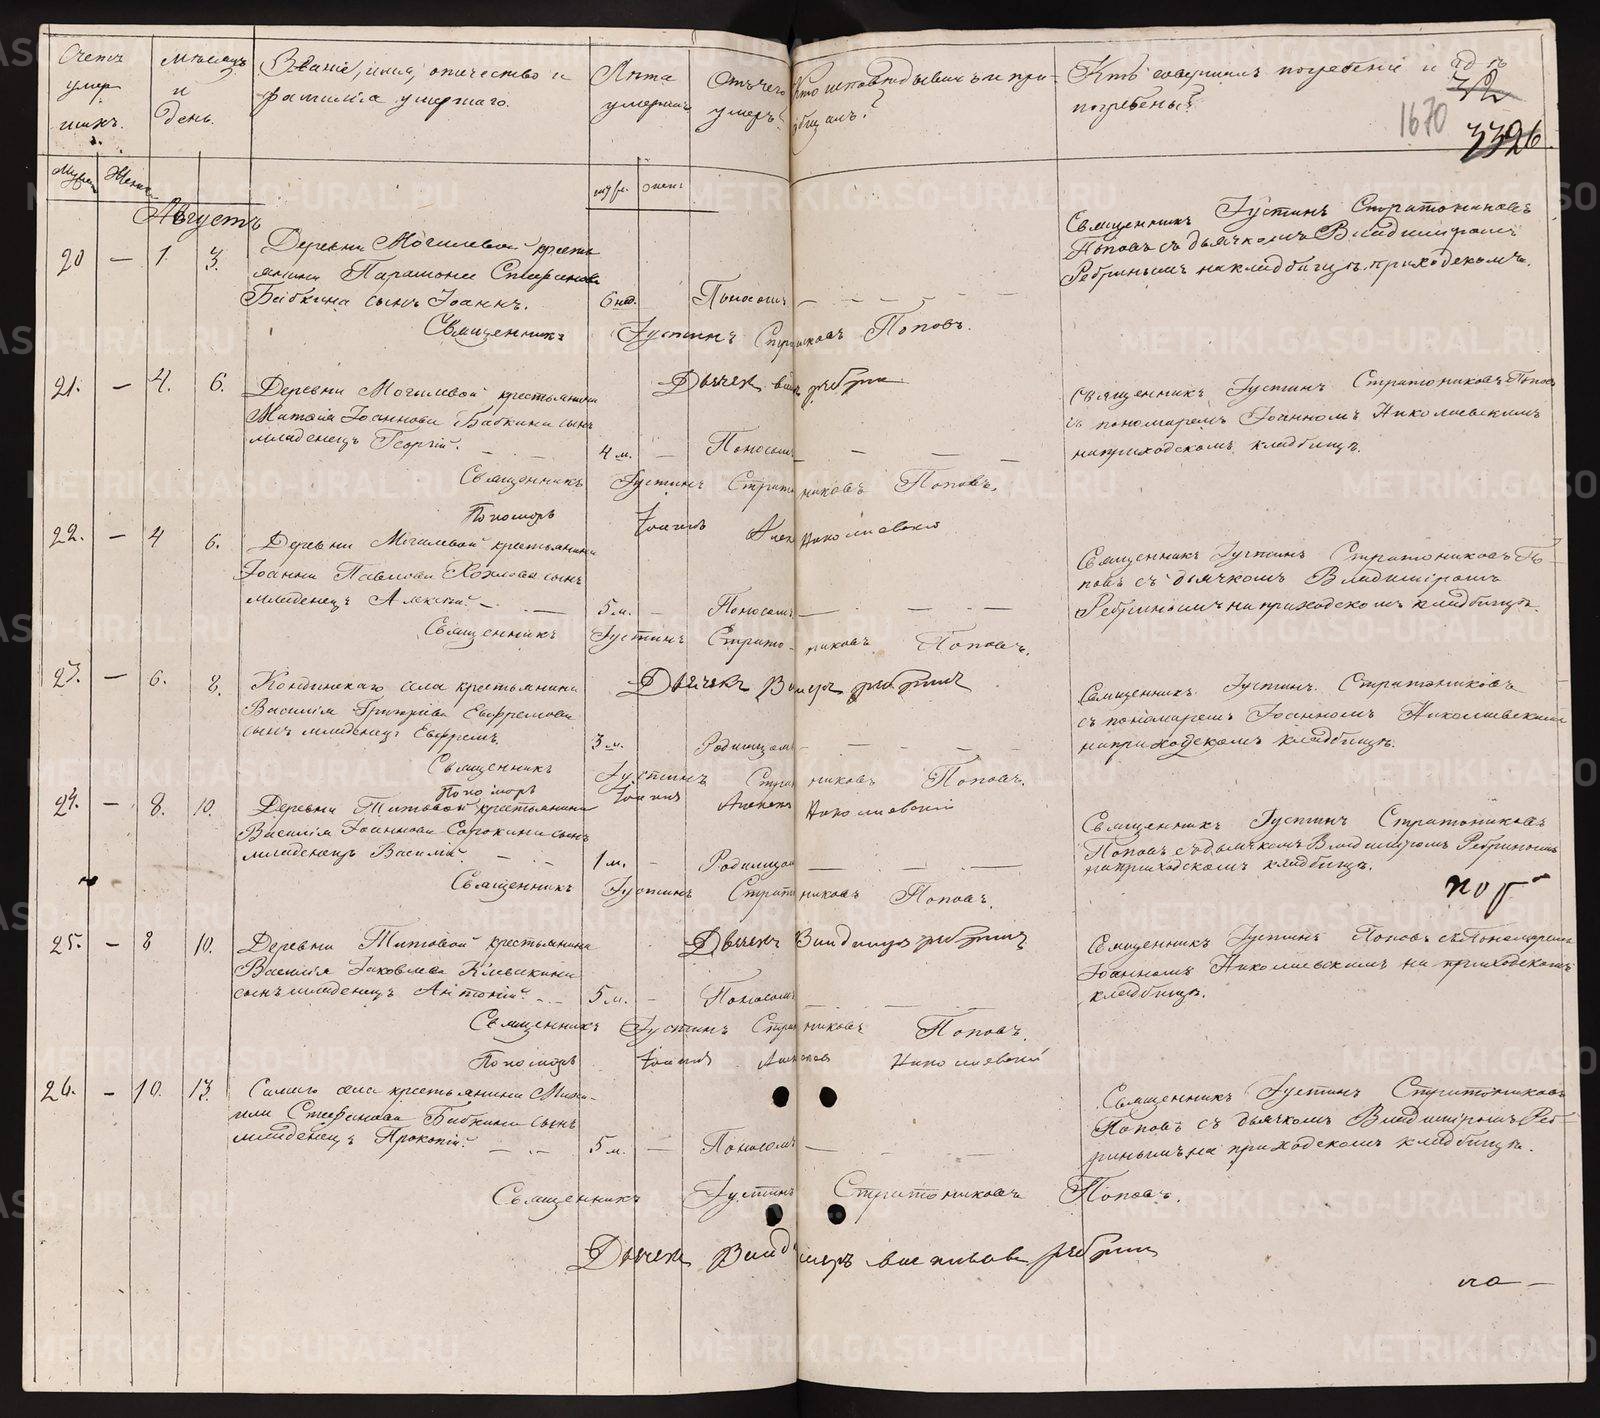 Счетъ умер- шихъ.
Мѣсяцъ и день.
Званіе, имя, отчество и фамилія умершаго.
Лѣта умершаго
Отъ чего умеръ?
Кто исповѣдывалъ и прі- общалъ?
Кто совершилъ погребеніе и гдѣ погребены?
1670
3326.
Муж. Жен.
муж. жен.
Августъ
20 — 1. 3.
Деревни Могилевой кресть-
янина Парамона Стефанова
Бабкина сынъ Іоаннъ.
6 нед. Поносомъ
Священникъ Іустинъ Стратониковъ Поповъ
с дьячкомъ Владиміромъ
Ребринымъ на кладбищѣ приходскомъ.
Священникъ Іустинъ Стратониковъ Поповъ.
Дьячекъ Ребрин
21. — 4. 6.
Деревни Могилевой крестьянина
Матѳія Іоаннова Бабкина сынъ
младенецъ Георгій.
4 м. — Поносомъ
Священникъ Іустинъ Стратониковъ Поповъ
съ пономаремъ Іоанномъ Николаевскимъ
на приходскомъ кладбищѣ.
Священникъ Іустинъ Стратониковъ Поповъ.
Пономарь Іоаннъ Николаевскій
22. — 4 6.
Деревни Могилевой крестьянина
Іоанна Павлова Козлова сынъ
младенецъ Алексій.
5 м. — Поносомъ
Священникъ Іустинъ Стратониковъ По-
повъ съ дьячкомъ Владиміромъ
Ребринымъ на приходскомъ кладбищѣ.
Священникъ Іустинъ Стратониковъ Поповъ.
Дьячекъ Ребрин
23. — 6. 8.
Кондинскаго села крестьянина
Василія Григорьева Евфремова
сынъ младенецъ Евфремъ.
3 м. Родимцомъ
Священникъ Іустинъ Стратониковъ
съ пономаремъ Іоанномъ Николаевскимъ
на приходскомъ кладбищѣ.
Священникъ Іустинъ Стратониковъ Поповъ.
Пономарь Іоаннъ Николаевскій
24. — 8. 10.
Деревни Титовой крестьянина
Василія Іоаннова Сорокина сынъ
младенецъ Василій.
1 м. — Родимцомъ
Священникъ Іустинъ Стратониковъ
Поповъ с дьячкомъ Владиміромъ Ребринымъ
на приходскомъ кладбищѣ.
Священникъ Іустинъ Стратониковъ Поповъ.
Дьячекъ Владимиръ Ребрин
25. — 8 10.
Деревни Титовой крестьянина
Василія Іаковлева Клевакина
сынъ младенецъ Антоній.
5 м. — Поносомъ
Священникъ Іустинъ Поповъ съ Пономаремъ
Іоанномъ Николаевскимъ на приходскомъ
кладбищѣ.
Священникъ Іустинъ Стратониковъ Поповъ.
Пономарь Іоаннъ Николаевскій
26. — 10. 13.
Самаго села крестьянина
Стефанова Бабкина сынъ
младенецъ Прокопій.
5 м. — Поносомъ
Священникъ Іустинъ Стратониковъ
Поповъ съ дьячкомъ Владиміромъ Реб-
ринымъ на приходскомъ кладбищѣ.
Священникъ Іустинъ Стратониковъ Поповъ.
Дьячекъ Владимиръ Ребрин
по —
METRIKI.GASO-URAL.RU